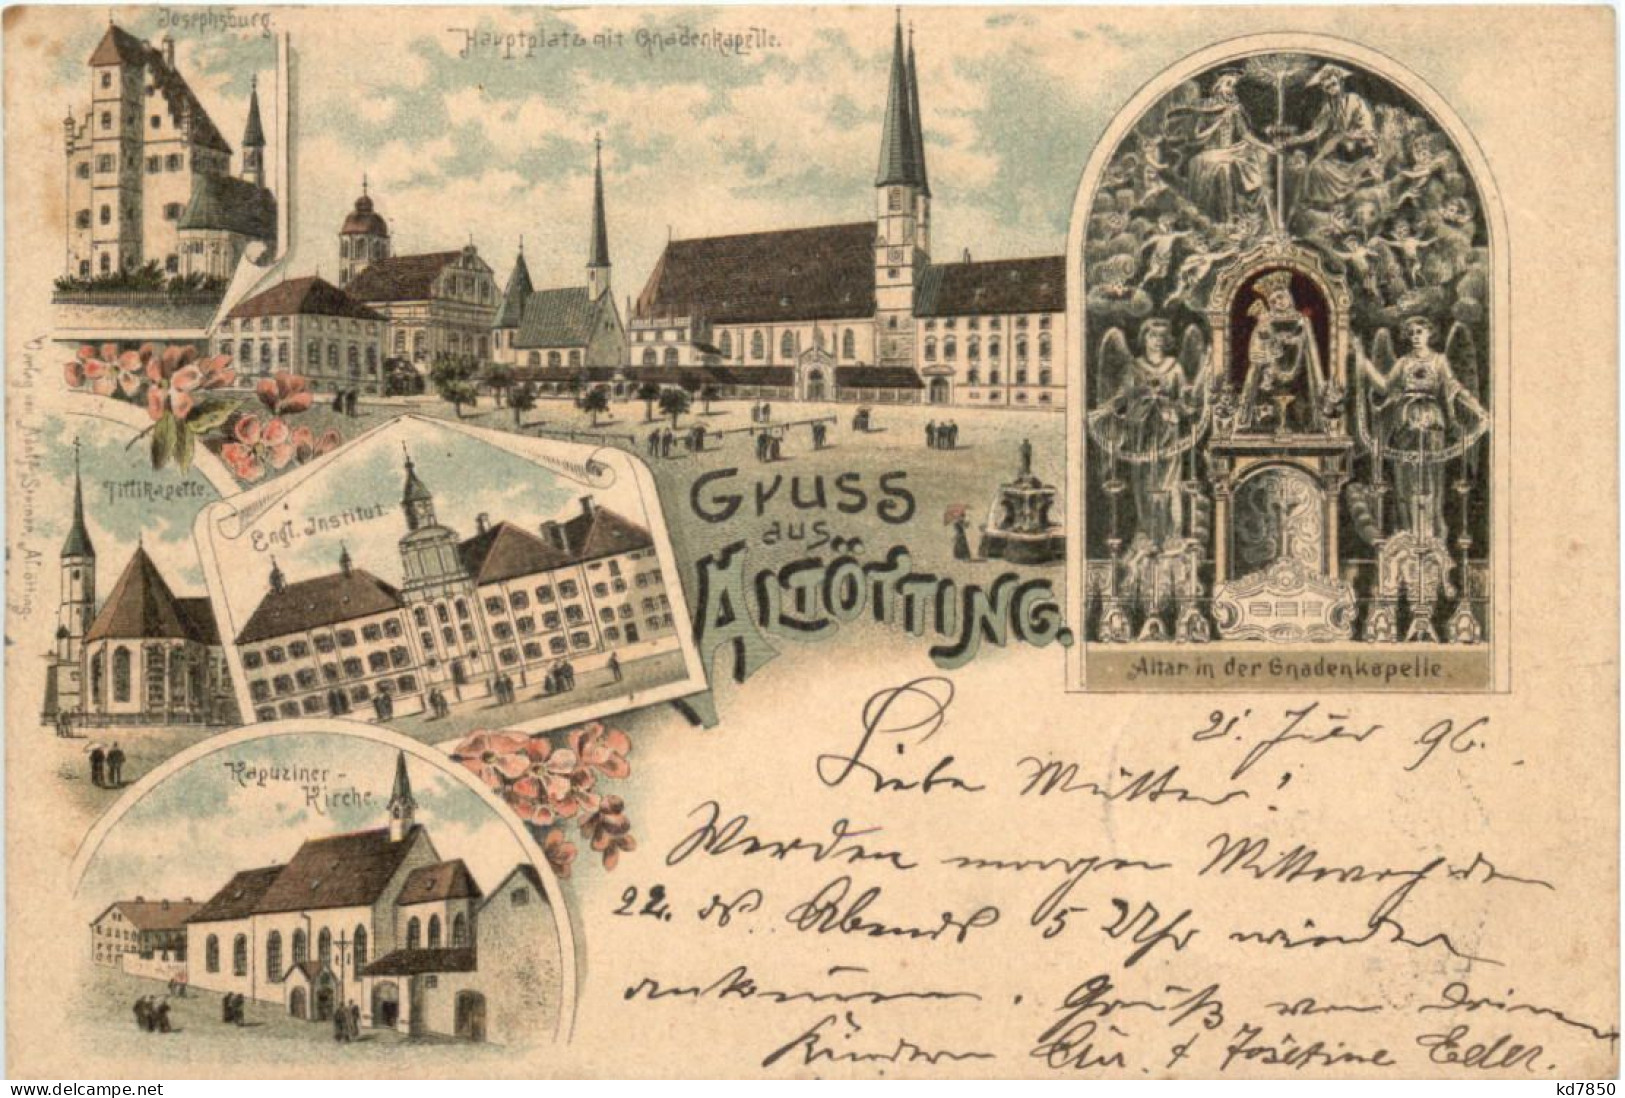 Josephsburg.
Hauptplatz mit Gnadenkapelle.
Tillikapelle.
Engl. Institut.
Gruss
aus
Altötting.
Kapuziner-
Kirche.
Altar in der Gnadenkapelle.
Verlag von Adolf Steiner, Altötting.
21. 96.
Liebe Mutter!
Werden morgen Mittwoch den
22. ds. Abends 5 Uhr wieder
ankommen. Gruß von Deinen
Kindern & Josefine Eder.
delcampe.net
kd7850